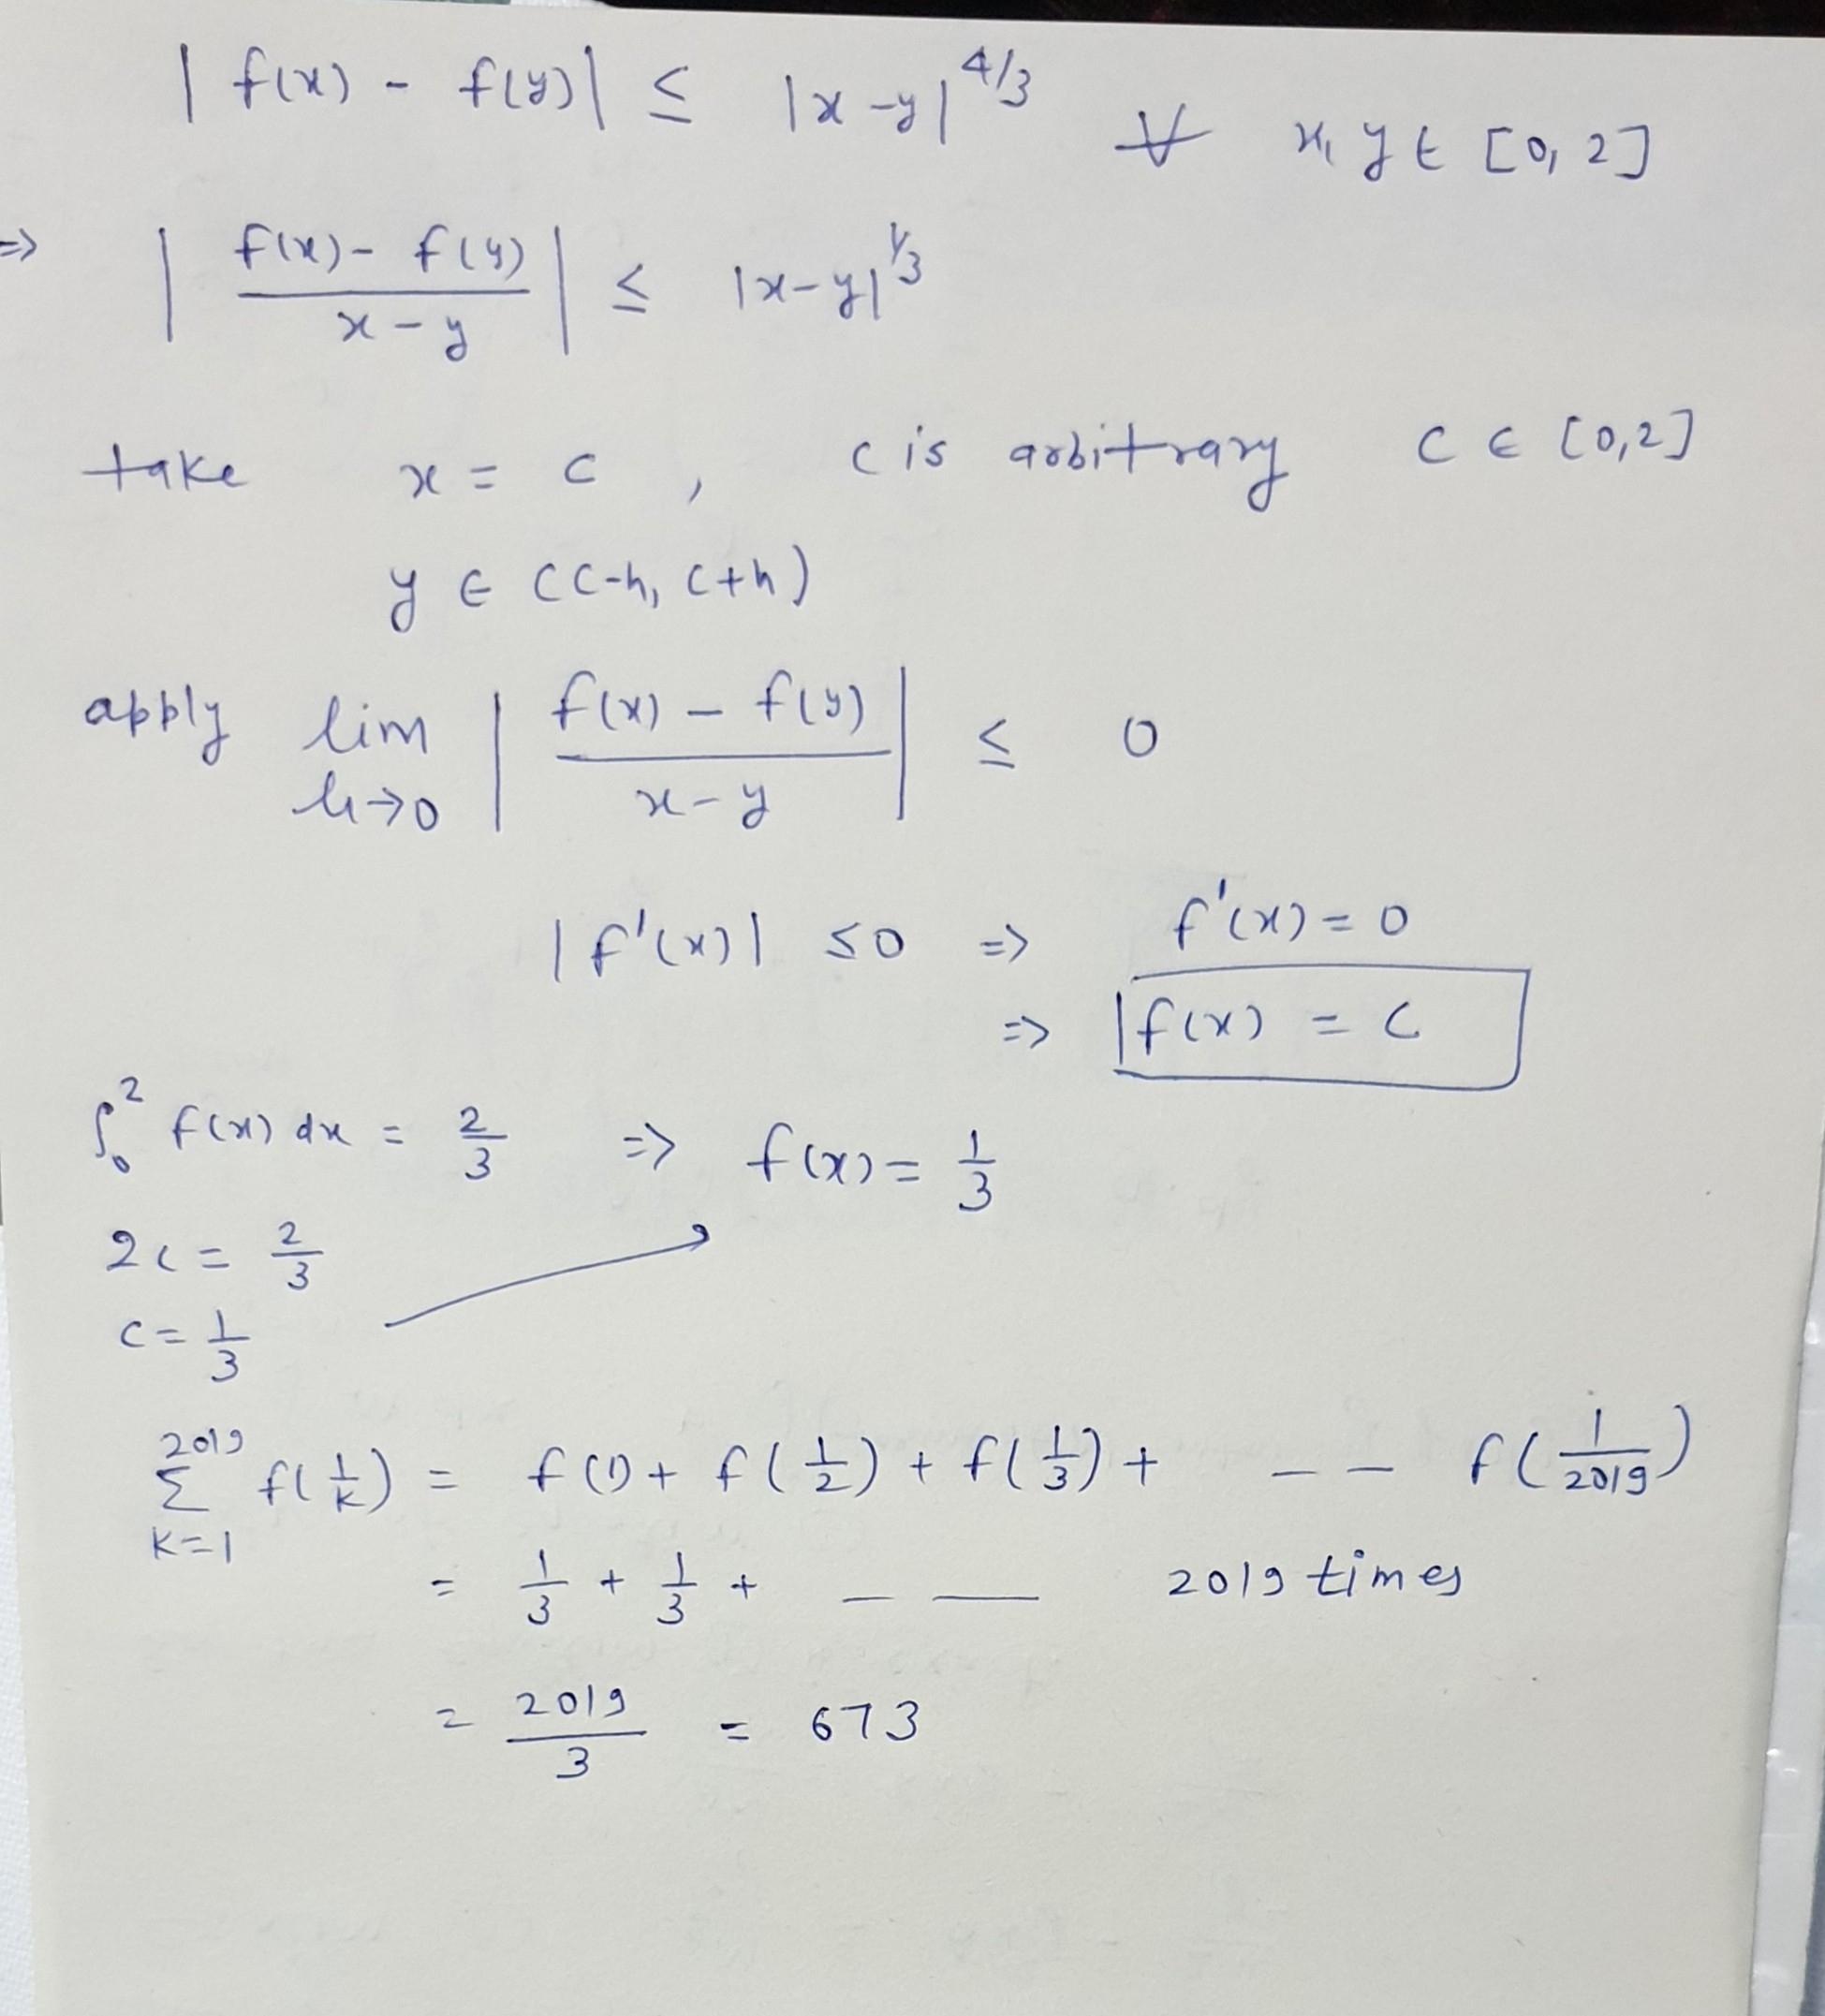 | f(x) - f(y)| ≤ |x-y|^4/3 ∀ x, y ∈ [0, 2]
=> | f(x) - f(y) / x - y | ≤ |x-y|^1/3
take x = c , c is arbitrary c ∈ [0,2]
y ∈ (c-h, c+h)
apply lim h→0 | f(x) - f(y) / x-y | ≤ 0
| f'(x) | ≤0 => f'(x) = 0
=> f(x) = c
∫_0^2 f(x) dx = 2/3 => f(x) = 1/3
2c = 2/3
c = 1/3
2019 Σ k=1 f(1/k) = f(1) + f(1/2) + f(1/3) + - - f(1/2019)
= 1/3 + 1/3 + - — 2019 times
= 2019/3 = 673